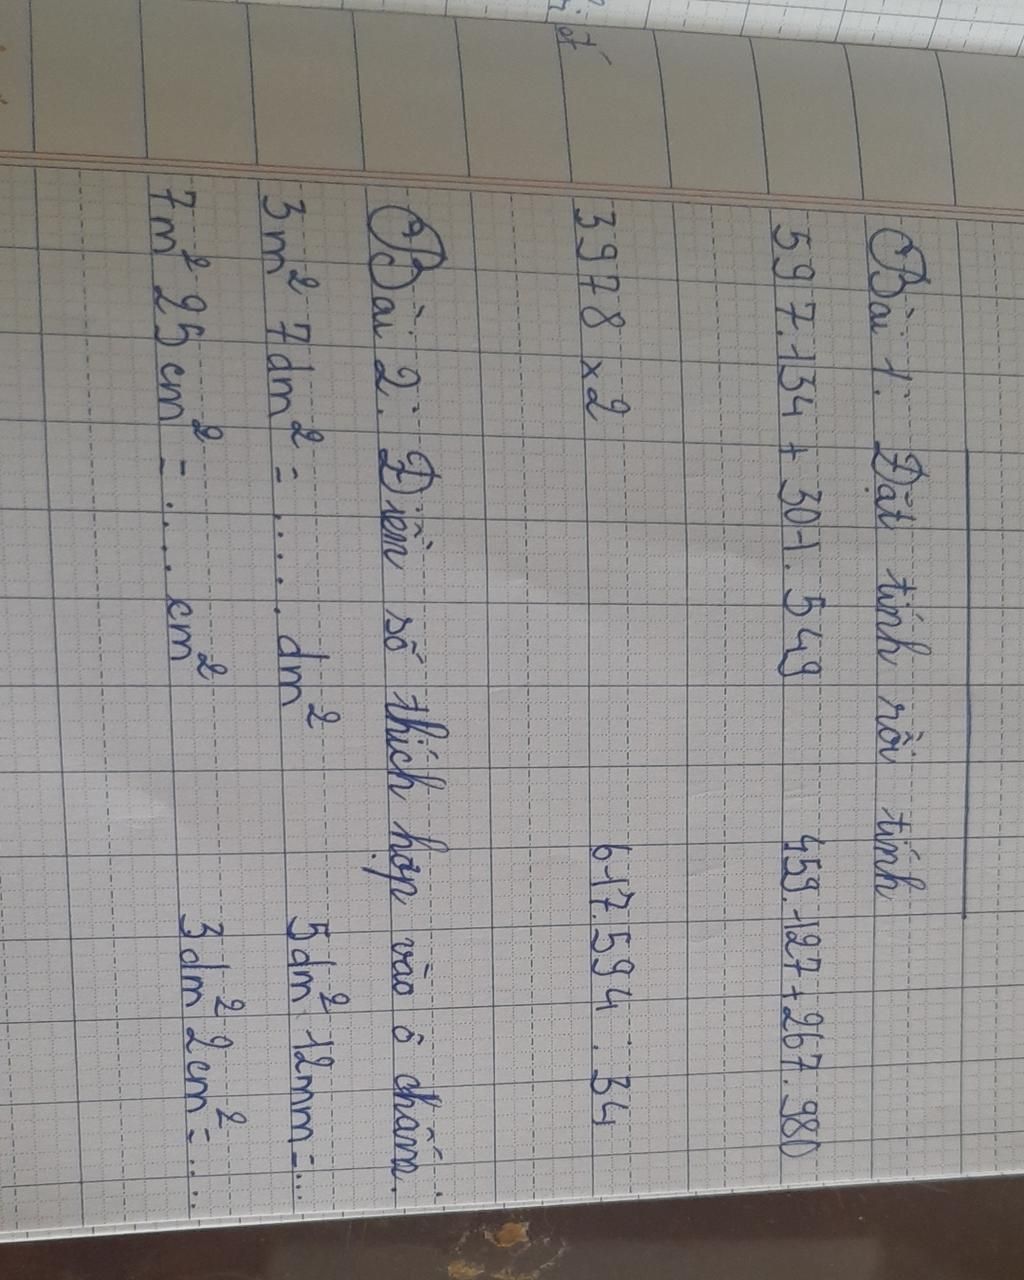 Bài 1. Đặt tính rồi tính
597.134 + 301.549 459.127 + 267.980
3978 x 2 617.594 : 34
Bài 2. Điền số thích hợp vào ô chấm.
3m² 7dm² = ..... dm² 5dm² 12mm = ...
7m² 25cm² = ..... cm² 3dm² 2cm² = ...